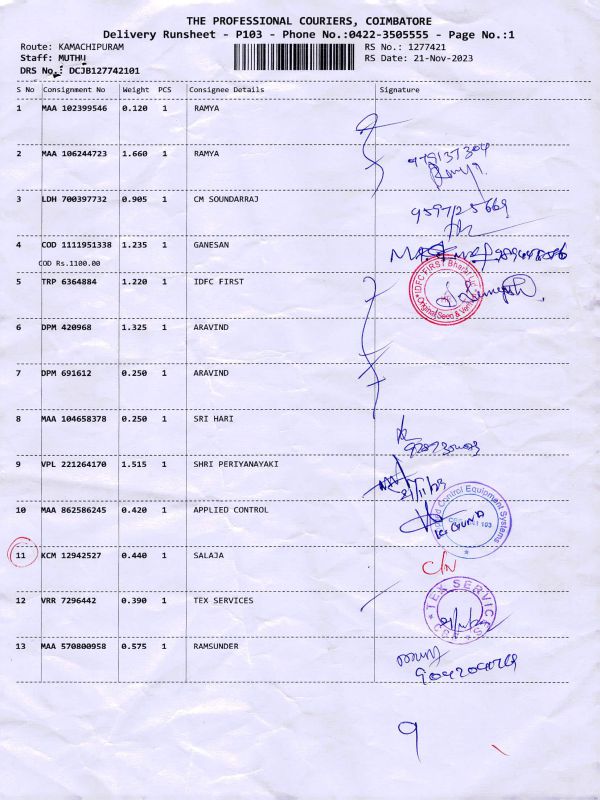 THE PROFESSIONAL COURIERS, COIMBATORE
Delivery Runsheet - P103 - Phone No.:0422-3505555 - Page No.:1
Route: KAMACHIPURAM RS No.: 1277421
Staff: MUTHU RS Date: 21-Nov-2023
DRS No.: DCJB127742101
S No Consignment No Weight PCS Consignee Details Signature
1 MAA 102399546 0.120 1 RAMYA
2 MAA 106244723 1.660 1 RAMYA
Ramya
3 LDH 700397732 0.905 1 CM SOUNDARRAJ
9597125669
4 COD 1111951338 1.235 1 GANESAN
COD Rs.1100.00
5 TRP 6364884 1.220 1 IDFC FIRST
IDFC FIRST Bharat
Original Seen &
6 DPM 420968 1.325 1 ARAVIND
7 DPM 691612 0.250 1 ARAVIND
8 MAA 104658378 0.250 1 SRI HARI
9 VPL 221264170 1.515 1 SHRI PERIYANAYAKI
21/11/23
10 MAA 862586245 0.420 1 APPLIED CONTROL
Control Equipment Systems
11 KCM 12942527 0.440 1 SALAJA
C/N
12 VRR 7296442 0.390 1 TEX SERVICES
TEX SERVICES
13 MAA 570800958 0.575 1 RAMSUNDER
9